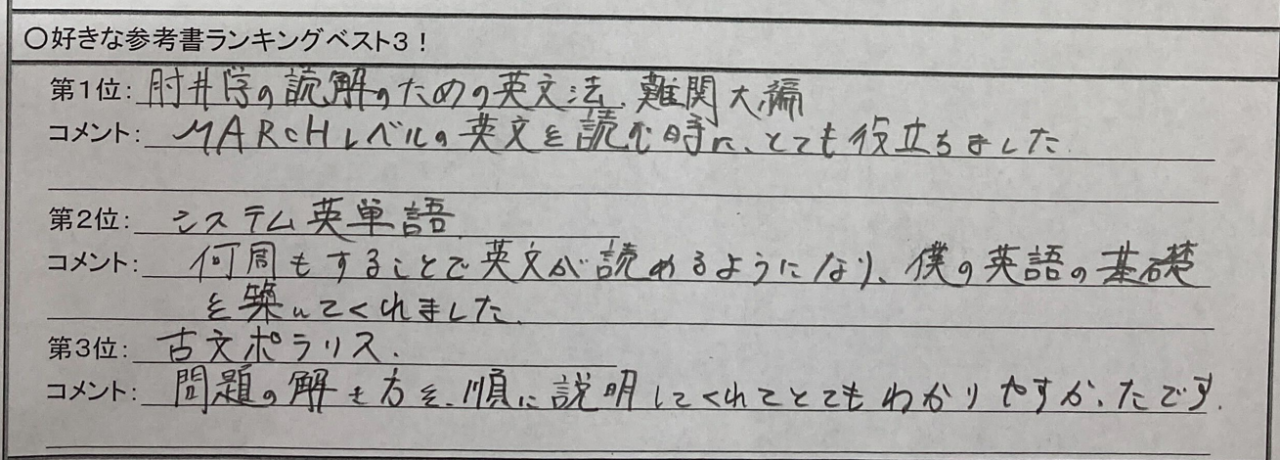 ○好きな参考書ランキングベスト3！
第1位：肘井学の読解のための英文法 難関大編
コメント：MARCHレベルの英文を読む時に、とても役立ちました.
第2位：システム英単語
コメント：何周もすることで英文が読めるようになり、僕の英語の基礎
を築いてくれました.
第3位：古文ポラリス.
コメント：問題の解き方を、順に説明してくれてとてもわかりやすかったです.